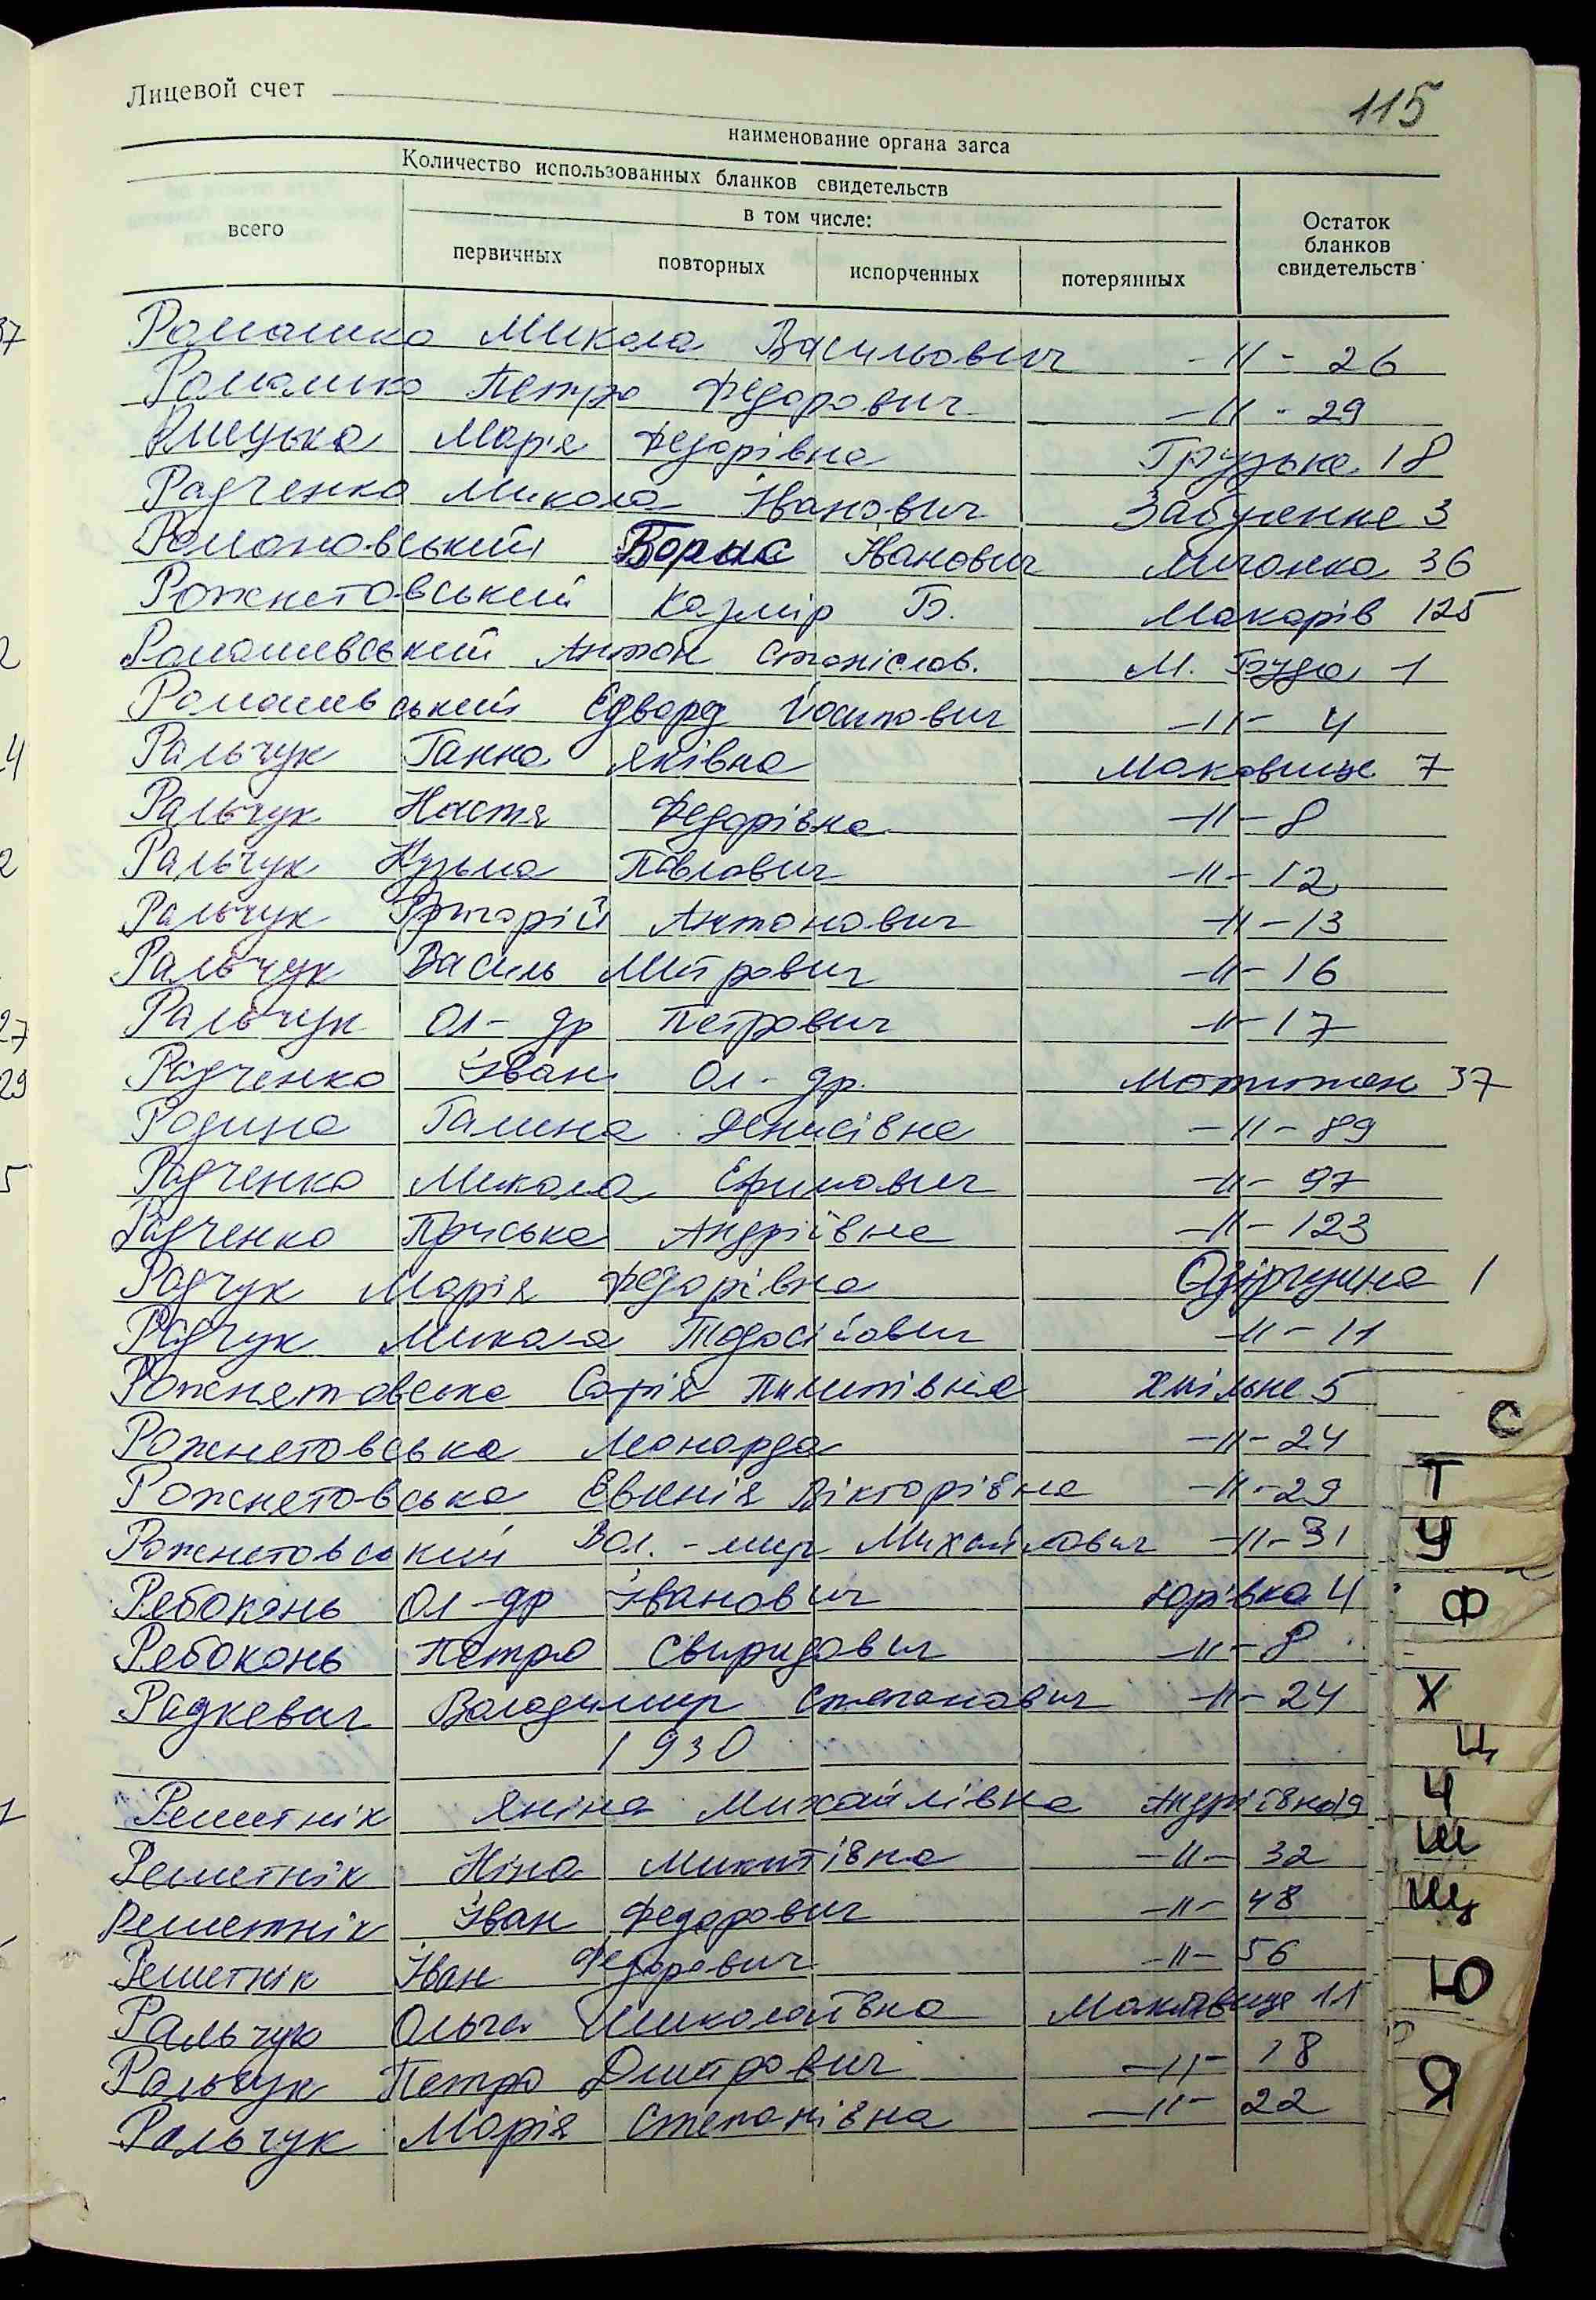 115
Лицевой счет
наименование органа загса
Количество использованных бланков свидетельств
в том числе:
всего первичных повторных испорченных потерянных Остаток бланков свидетельств
Ромашко Микола Васильович -//- 26
Ромашко Петро Федорович -//- 29
Марія Федорівна Грузьке 18
Радченко Микола Іванович Забуяння 3
Романовський Борис Іванович Личанка 36
Рожнетовський Казмір Б. Макарів 125
Ромашевський Антон Станіслав. М. Буда 1
Ромашевський Едвард Йосипович -//- 4
Ральчук Ганна Яківна Маковище 7
Ральчук Настя Федорівна -//- 8
Ральчук Кузьма Павлович -//- 12
Ральчук Григорій Антонович -//- 13
Ральчук Василь Митрович -//- 16
Ральчук Ол-др Петрович -//- 17
Радченко Іван Ол-др. Мотижен 37
Родина Галина Денисівна -//- 89
Радченко Микола Ефимович -//- 97
Радченко Пріська Андріївна -//- 123
Радчук Марія Федорівна 1
Радчук Микола Тодосійович -//- 11
Рожнятовська Софія Пилипівна Хмільне 5
Рожнетовська Леонарда -//- 24
Рожнетовська Евгенія Вікторівна -//- 29
Рожнетовський Вол.-мир Михайлович -//- 31
Ребоконь Ол-др Іванович Юрівка 4
Ребоконь Петро Свиридович -//- 8
Радкевич Володимир Степанович -//- 24
1930
Решетнік Яніна Михайлівна Андріївка 19
Решетнік Ніна Микитівна -//- 32
Решетнік Іван Федорович -//- 48
Решетнік Іван Федорович -//- 56
Ральчук Ольга Миколаївна Маковище 11
Ральчук Петро Дмитрович -//- 18
Ральчук Марія Степанівна -//- 22
С
Т
У
Ф
Х
Ц
Ч
Ш
Щ
Ю
Я